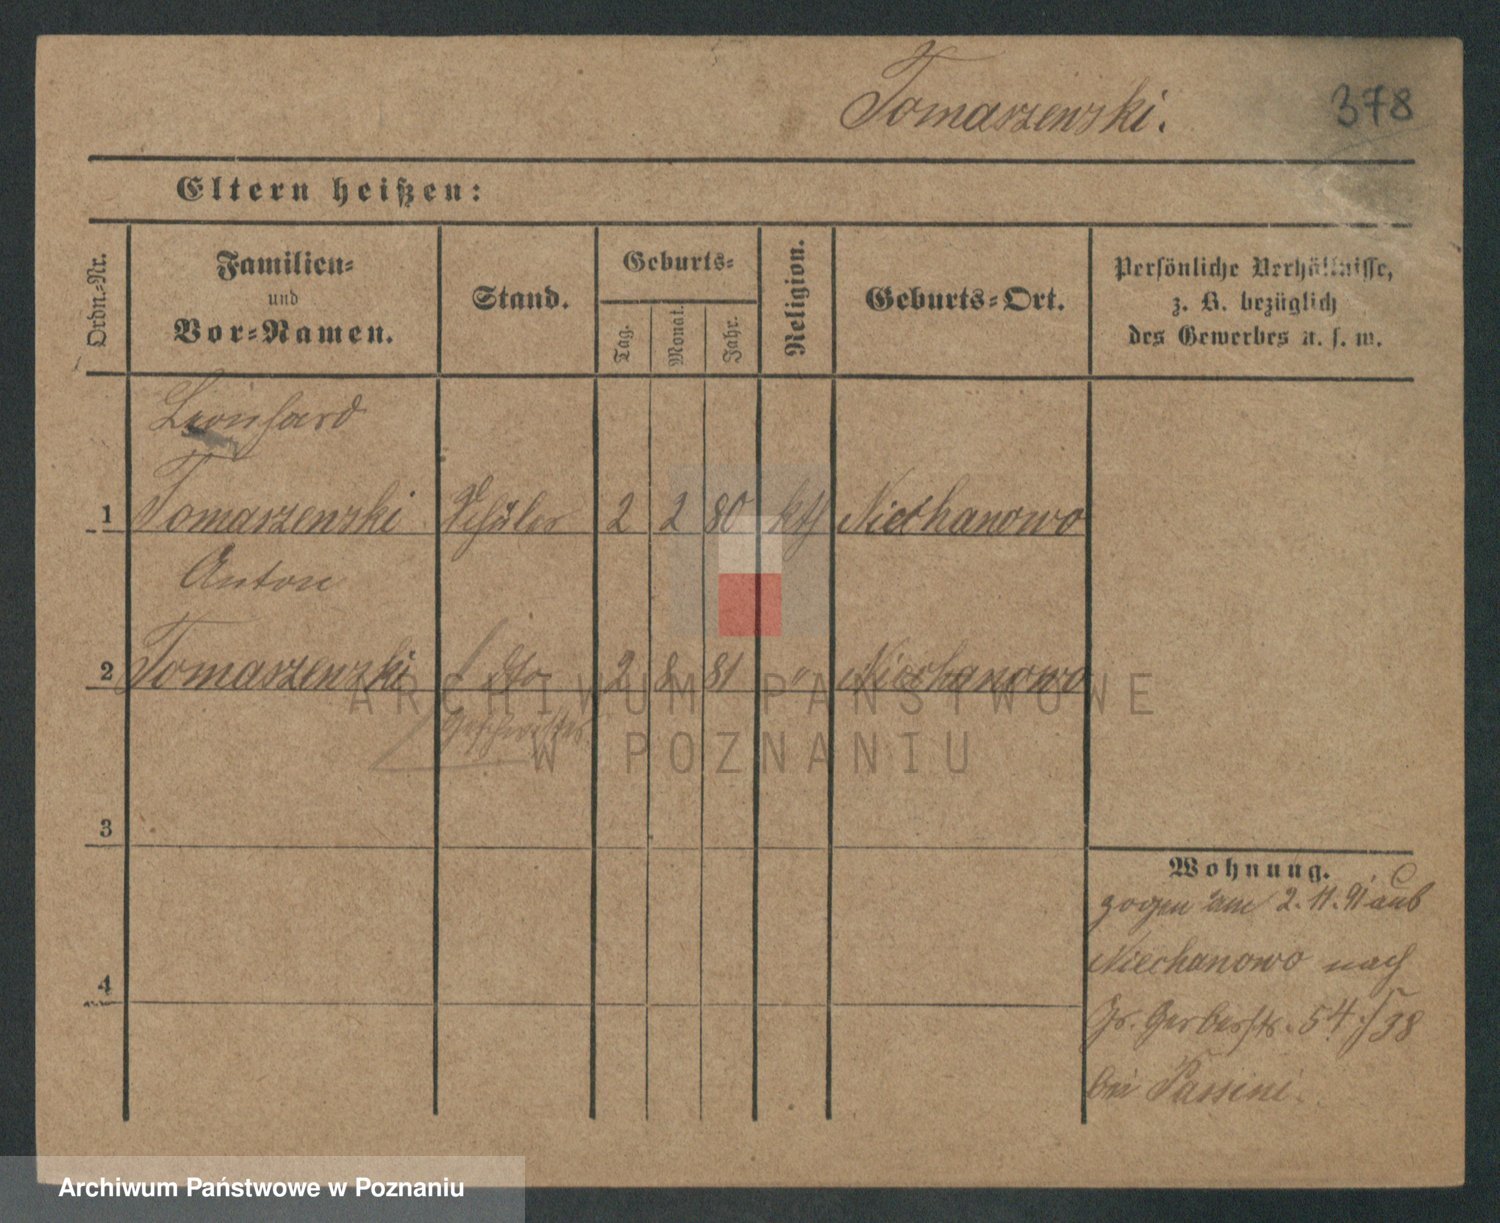 Tomaszewski.
378
Eltern heißen:
Ordn.-Nr.
Familien-
und
Vor-Namen.
Stand.
Geburts-
Tag.
Monat.
Jahr.
Religion.
Geburts-Ort.
Persönliche Verhältnisse,
z. B. bezüglich
des Gewerbes u. s. w.
Leonhard
1 Tomaszewski Schüler 2 2 80 kth Niechanowo
Anton
2 Tomaszewski dto 2 8 81 " Niechanowo
Geschwister
3
4
Wohnung.
zogen am 2.11.91 aus
Niechanowo nach
Gr. Gerberstr. 54/38
bei
ARCHIWUM PAŃSTWOWE
W POZNANIU
Archiwum Państwowe w Poznaniu